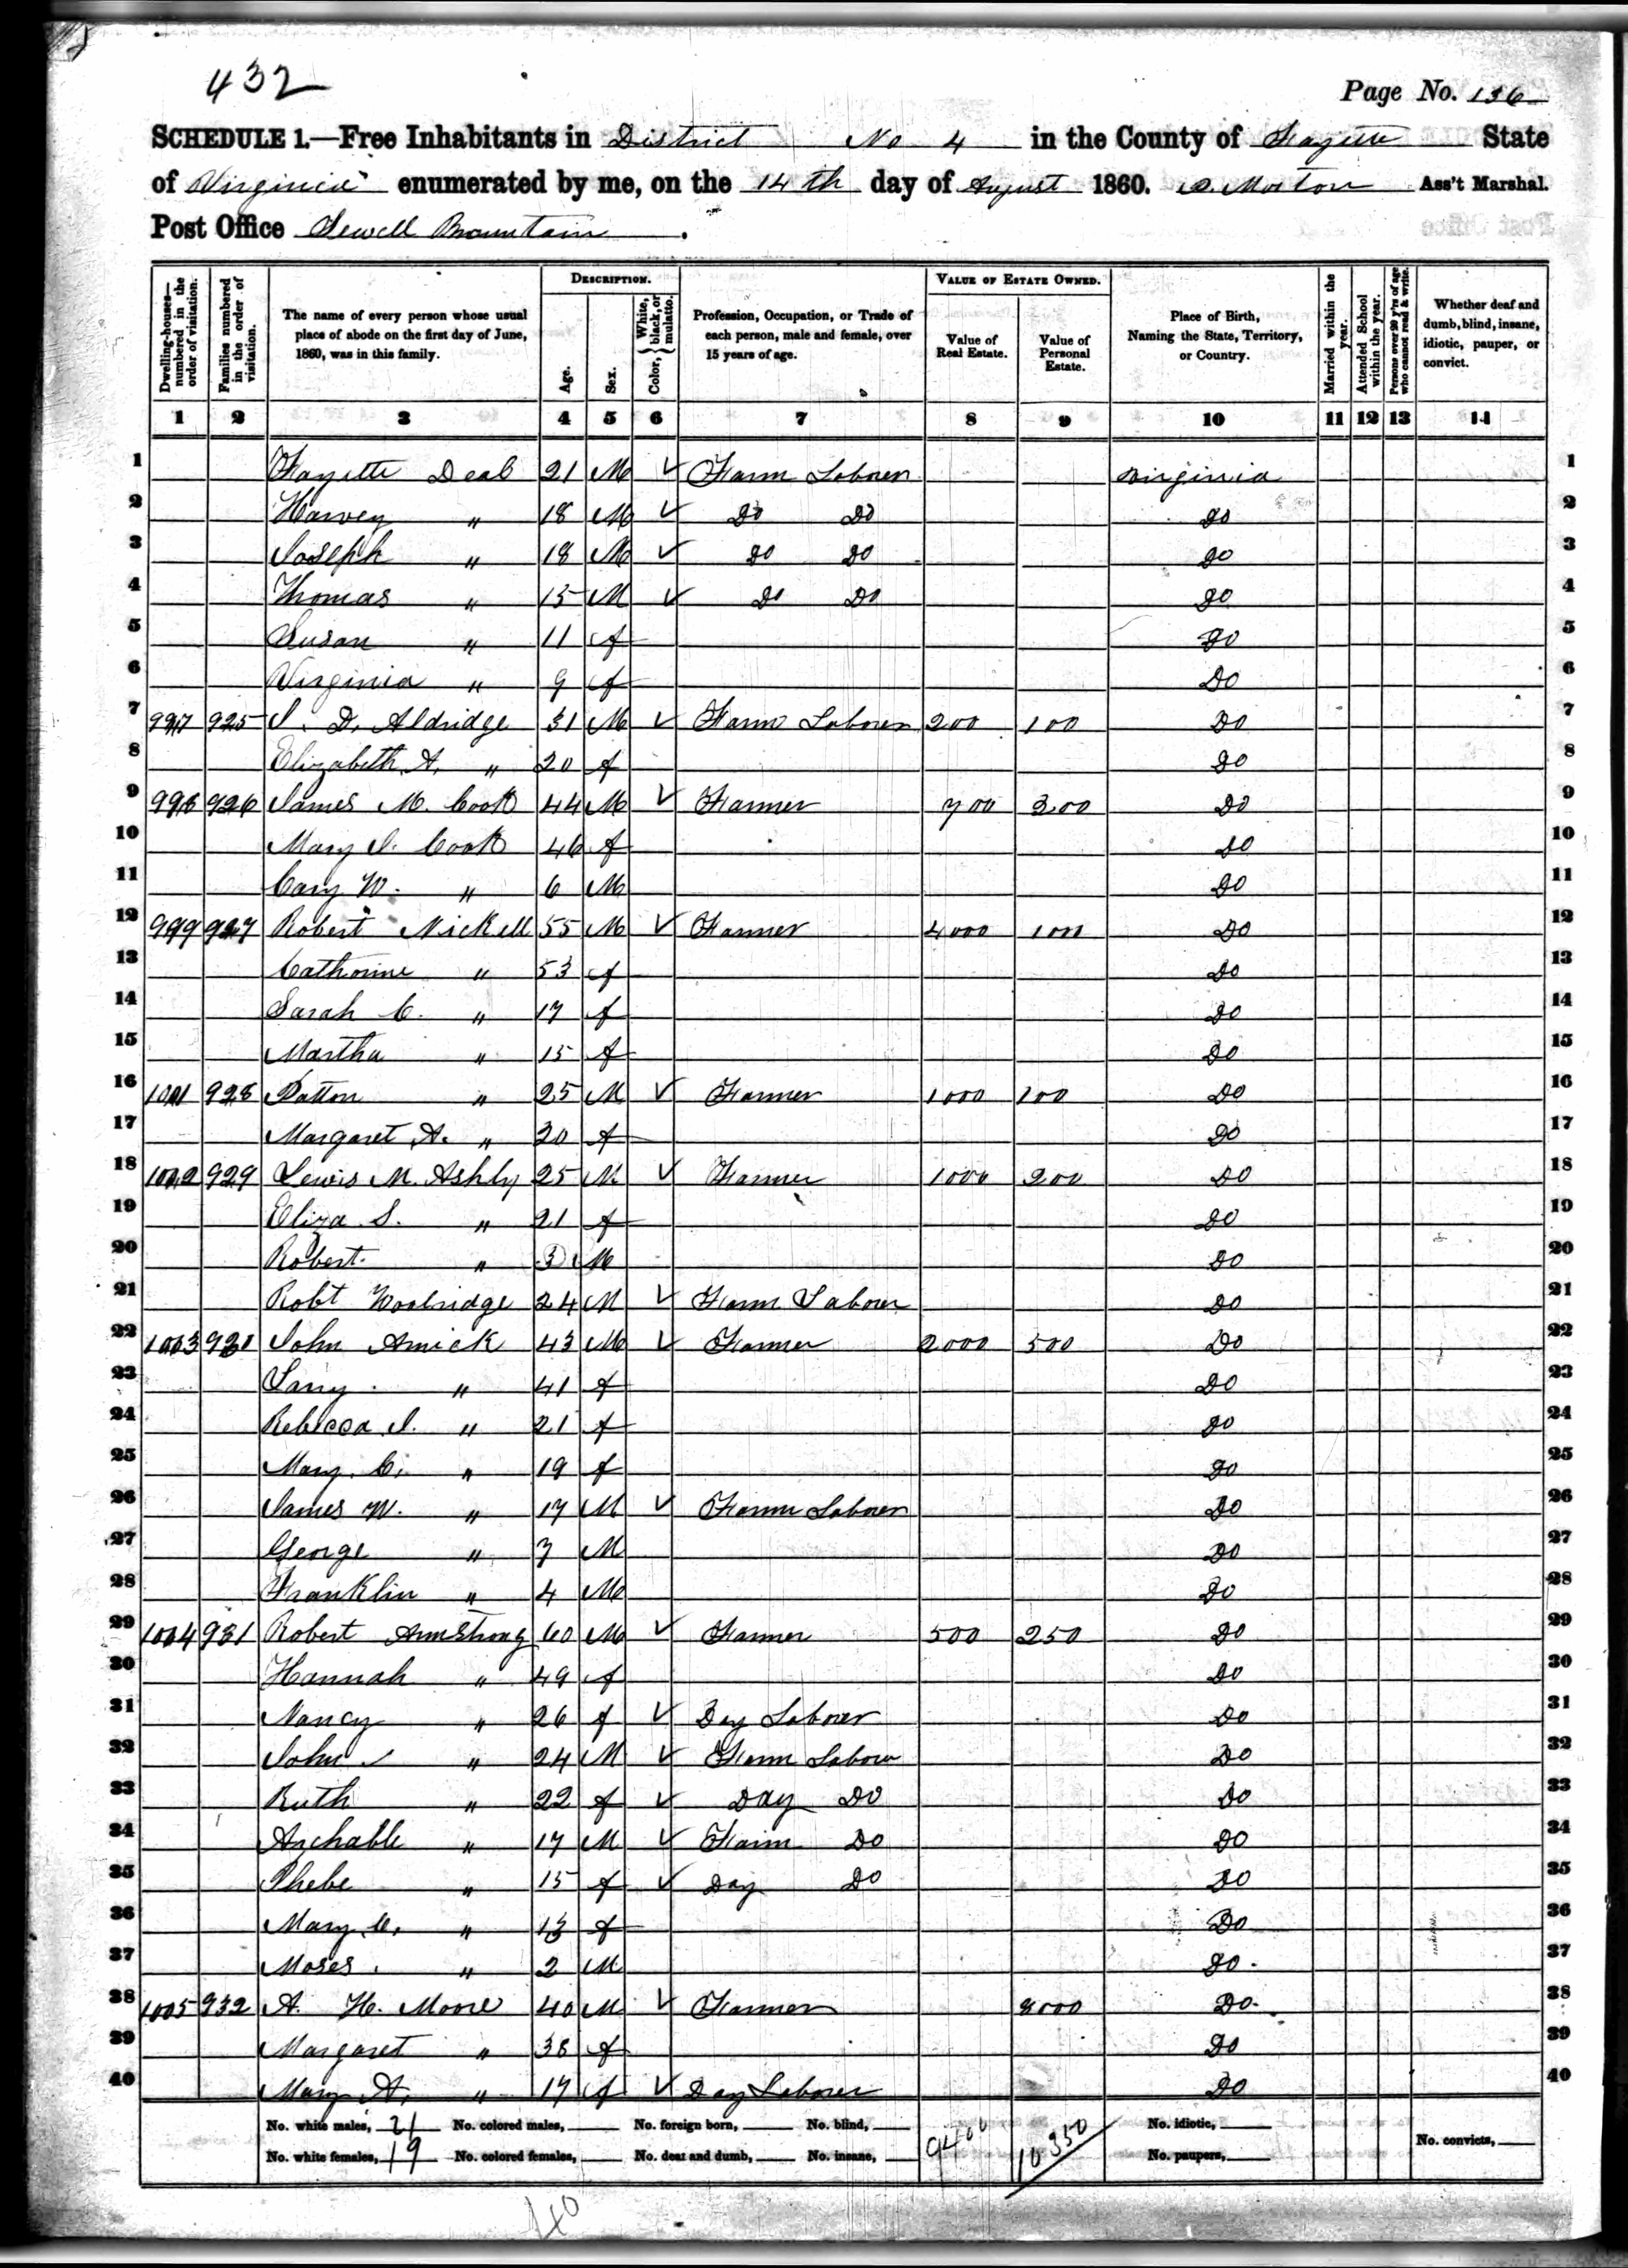 432
Page No. 136
SCHEDULE 1.—Free Inhabitants in District No 4 in the County of Fayette State
of Virginia enumerated by me, on the 14th day of August 1860. Morton Ass't Marshal.
Post Office Sewell Mountain.
Dwelling-houses—numbered in the order of visitation. Families numbered in the order of visitation. The name of every person whose usual place of abode on the first day of June, 1860, was in this family. DESCRIPTION. Age. Sex. Color, {White, black, or mulatto. Profession, Occupation, or Trade of each person, male and female, over 15 years of age. VALUE OF ESTATE OWNED. Value of Real Estate. Value of Personal Estate. Place of Birth, Naming the State, Territory, or Country. Married within the year. Attended School within the year. Persons over 20 y'rs of age who cannot read & write. Whether deaf and dumb, blind, insane, idiotic, pauper, or convict.
1 2 3 4 5 6 7 8 9 10 11 12 13 14
1 Fayette Deal 21 M ✓ Farm Laborer Virginia 1
2 Harvey " 18 M ✓ Do Do Do 2
3 Joseph " 18 M ✓ Do Do Do 3
4 Thomas " 15 M ✓ Do Do Do 4
5 Susan " 11 f Do 5
6 Virginia " 9 f Do 6
7 997 925 J. D. Aldridge 31 M ✓ Farm Laborer 200 100 Do 7
8 Elizabeth A. " 20 f Do 8
9 998 926 James M. Cook 44 M ✓ Farmer 700 300 Do 9
10 Mary J. Cook 46 f Do 10
11 Cary W. " 6 M Do 11
12 999 927 Robert Nickell 55 M ✓ Farmer 4000 1000 Do 12
13 Cathorine " 53 f Do 13
14 Sarah C. " 17 f Do 14
15 Martha " 15 f Do 15
16 1001 928 Patton " 25 M ✓ Farmer 1000 100 Do 16
17 Margaret A. " 20 f Do 17
18 1002 929 Lewis M. Ashly 25 M ✓ Farmer 1000 200 Do 18
19 Eliza S. " 21 f Do 19
20 Robert " 3 M Do 20
21 Robt Woolridge 24 M ✓ Farm Labour Do 21
22 1003 930 John Amick 43 M ✓ Farmer 2000 500 Do 22
23 " 41 f Do 23
24 Rebecca J. " 21 f Do 24
25 Mary C. " 19 f Do 25
26 James W. " 17 M ✓ Farm Laborer Do 26
27 George " 7 M Do 27
28 Franklin " 4 M Do 28
29 1004 931 Robert Armstrong 60 M ✓ Farmer 500 250 Do 29
30 Hannah " 49 f Do 30
31 Nancy " 26 f ✓ Day Laborer Do 31
32 John " 24 M ✓ Farm Labour Do 32
33 Ruth " 22 f ✓ Day Do Do 33
34 Archable " 17 M ✓ Farm Do Do 34
35 Phebe " 15 f ✓ Day Do Do 35
36 Mary C. " 13 f Do 36
37 Moses " 2 M Do 37
38 1005 932 A. H. Moore 40 M ✓ Farmer 8000 Do 38
39 Margaret " 38 f Do 39
40 Mary A. " 17 f ✓ Day Laborer Do 40
No. white males, 21 No. colored males, No. foreign born, No. blind, 9400 10350 No. idiotic,
No. white females, 19 No. colored females, No. deaf and dumb, No. insane, No. paupers, No. convicts,
40